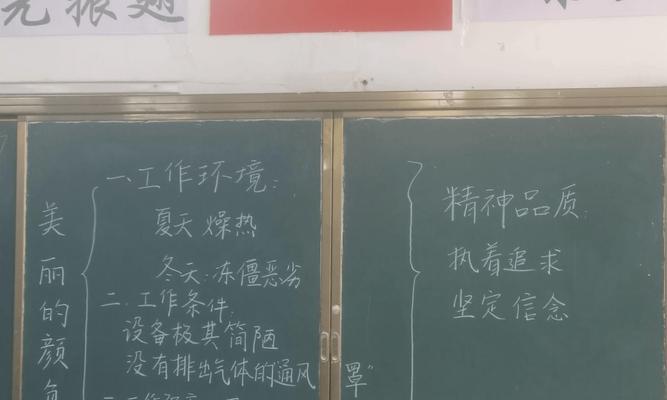 振翅
美丽的颜
一、工作环境：
夏天 燥热
冬天：冻僵恶劣
二、工作条件：
设备极其简陋
没有排出气体的"通风罩"
精神品质：
执着追求
坚定信念